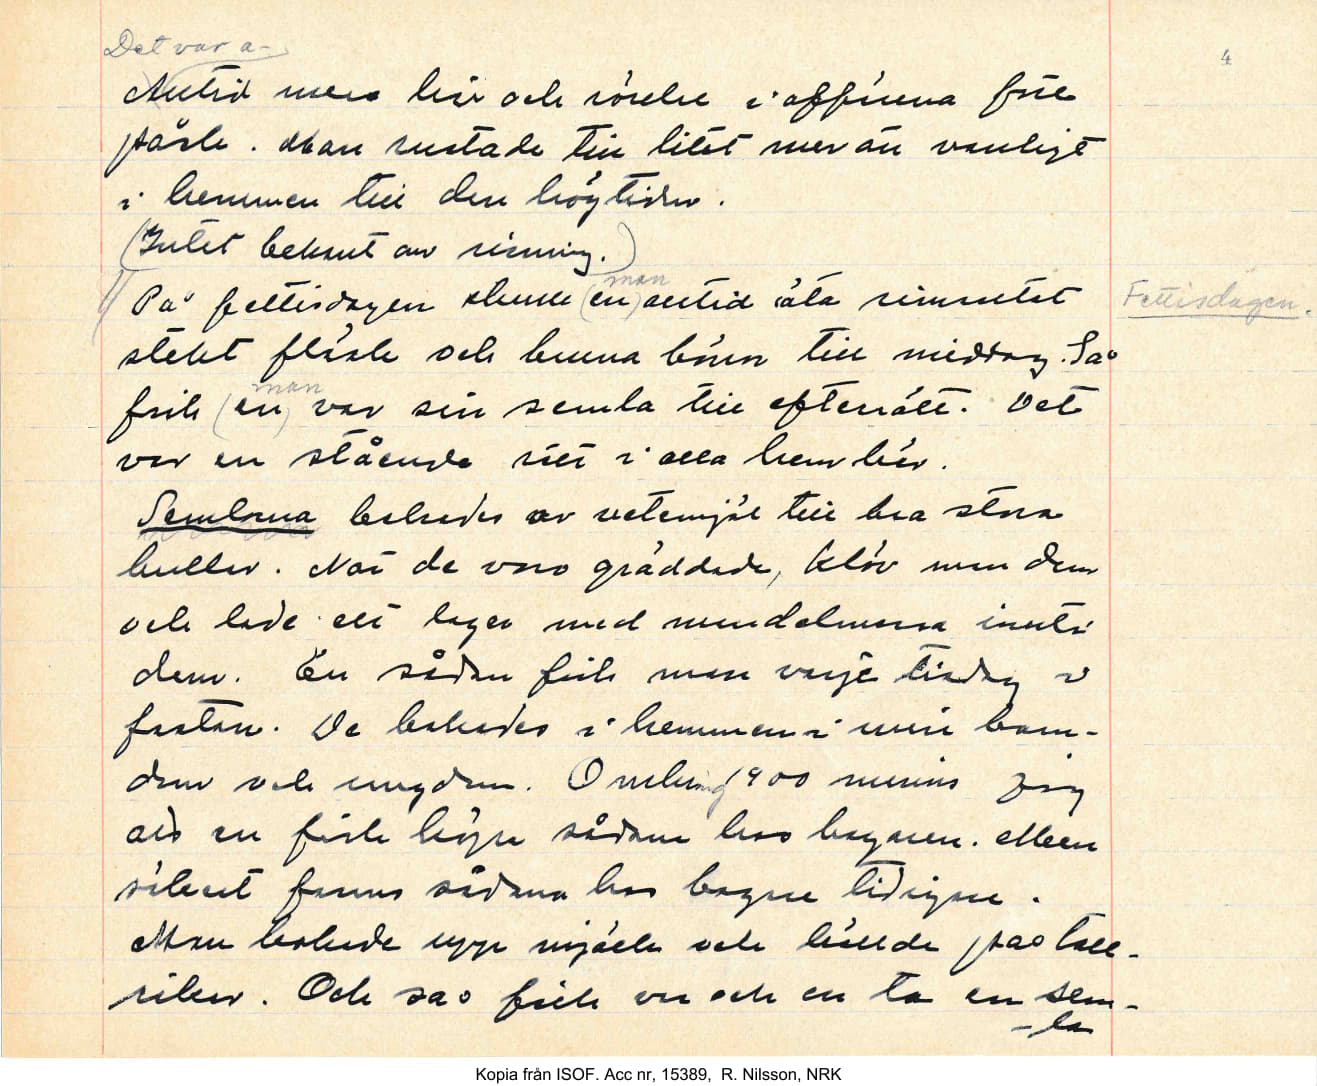 Det var a-
4
Alltid mera liv och rörelse i affärena före
påsk. Man rustade till litet mer än vanligt
i hemmen till den högtiden.
(Intet bekant av risning.)
man
På fettisdagen skulle (en) alltid äta rimsaltat Fettisdagen.
stekt fläsk och bruna bönor till middag. Så
man
fick (en) var sin semla till efterrätt. Det
var en stående rätt i alla hem här.
Semlorna bakades av vetemjöl till bra stora
bullar. När de voro gräddade, klöv man dem
och lade ett lager med mandelmassa inuti
dem. En sådan fick man varje tisdag i
fastan. De bakades i hemmen i min barn-
dom och ungdom. Omkring 1900 minns jag
att en fick köpa sådana hos bagaren. Men
säkert fanns sådana hos bagare tidigare.
Man kokade upp mjölk och hällde på tall-
riken. Och så fick en och en ta en sem-
-la
Kopia från ISOF. Acc nr, 15389, R. Nilsson, NRK